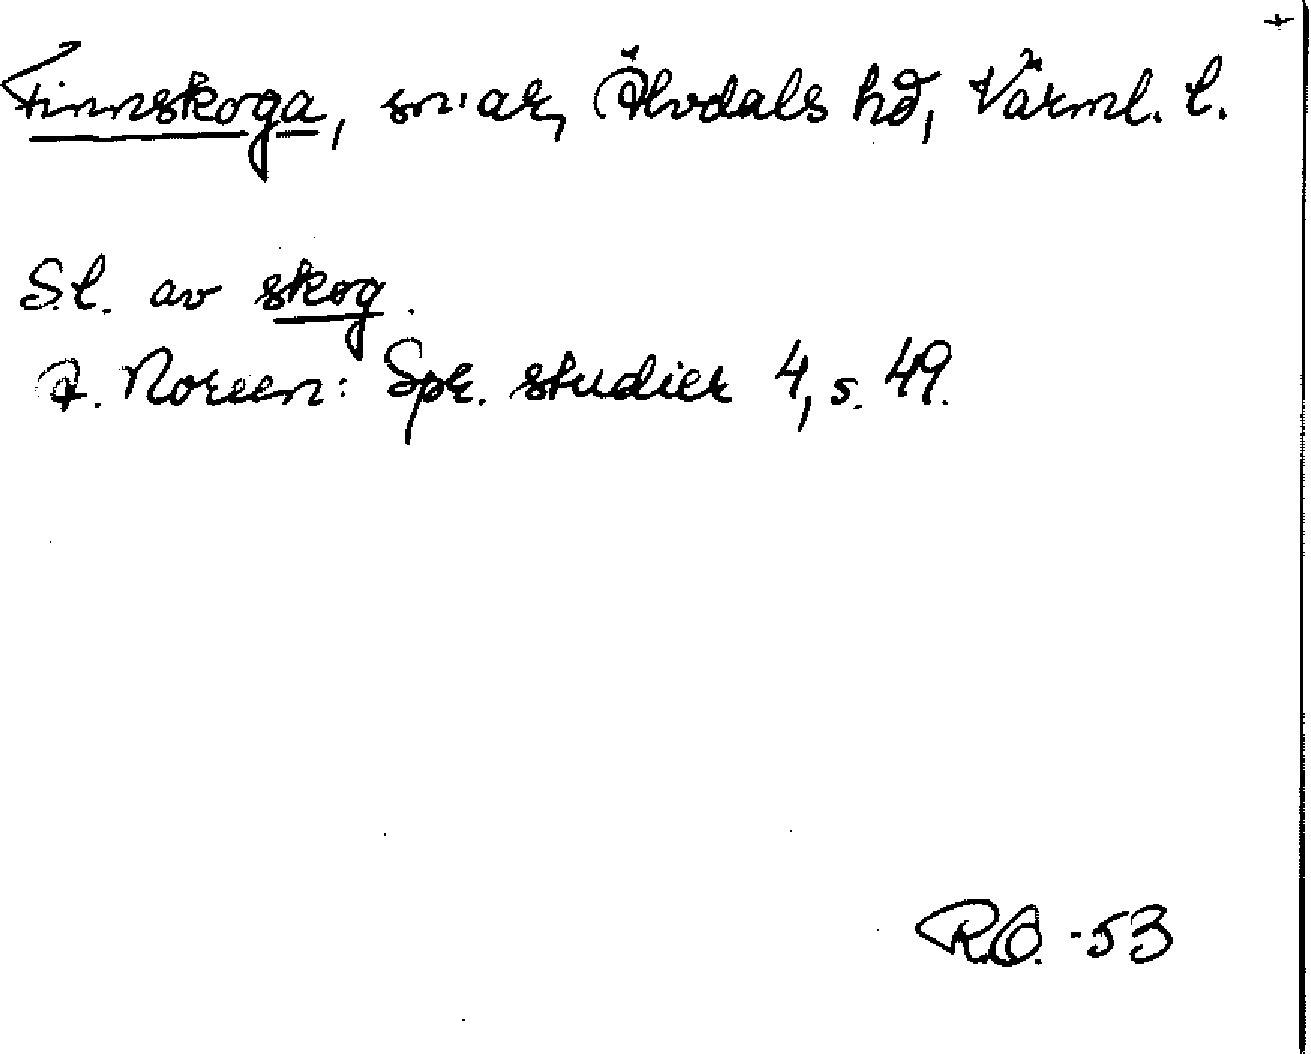 +
Finnskoga, sn:ar, Älvdals hd, Värml. l.
S.l. av skog.
A. Noreen: Spr. studier 4, s. 49.
R.O. -53